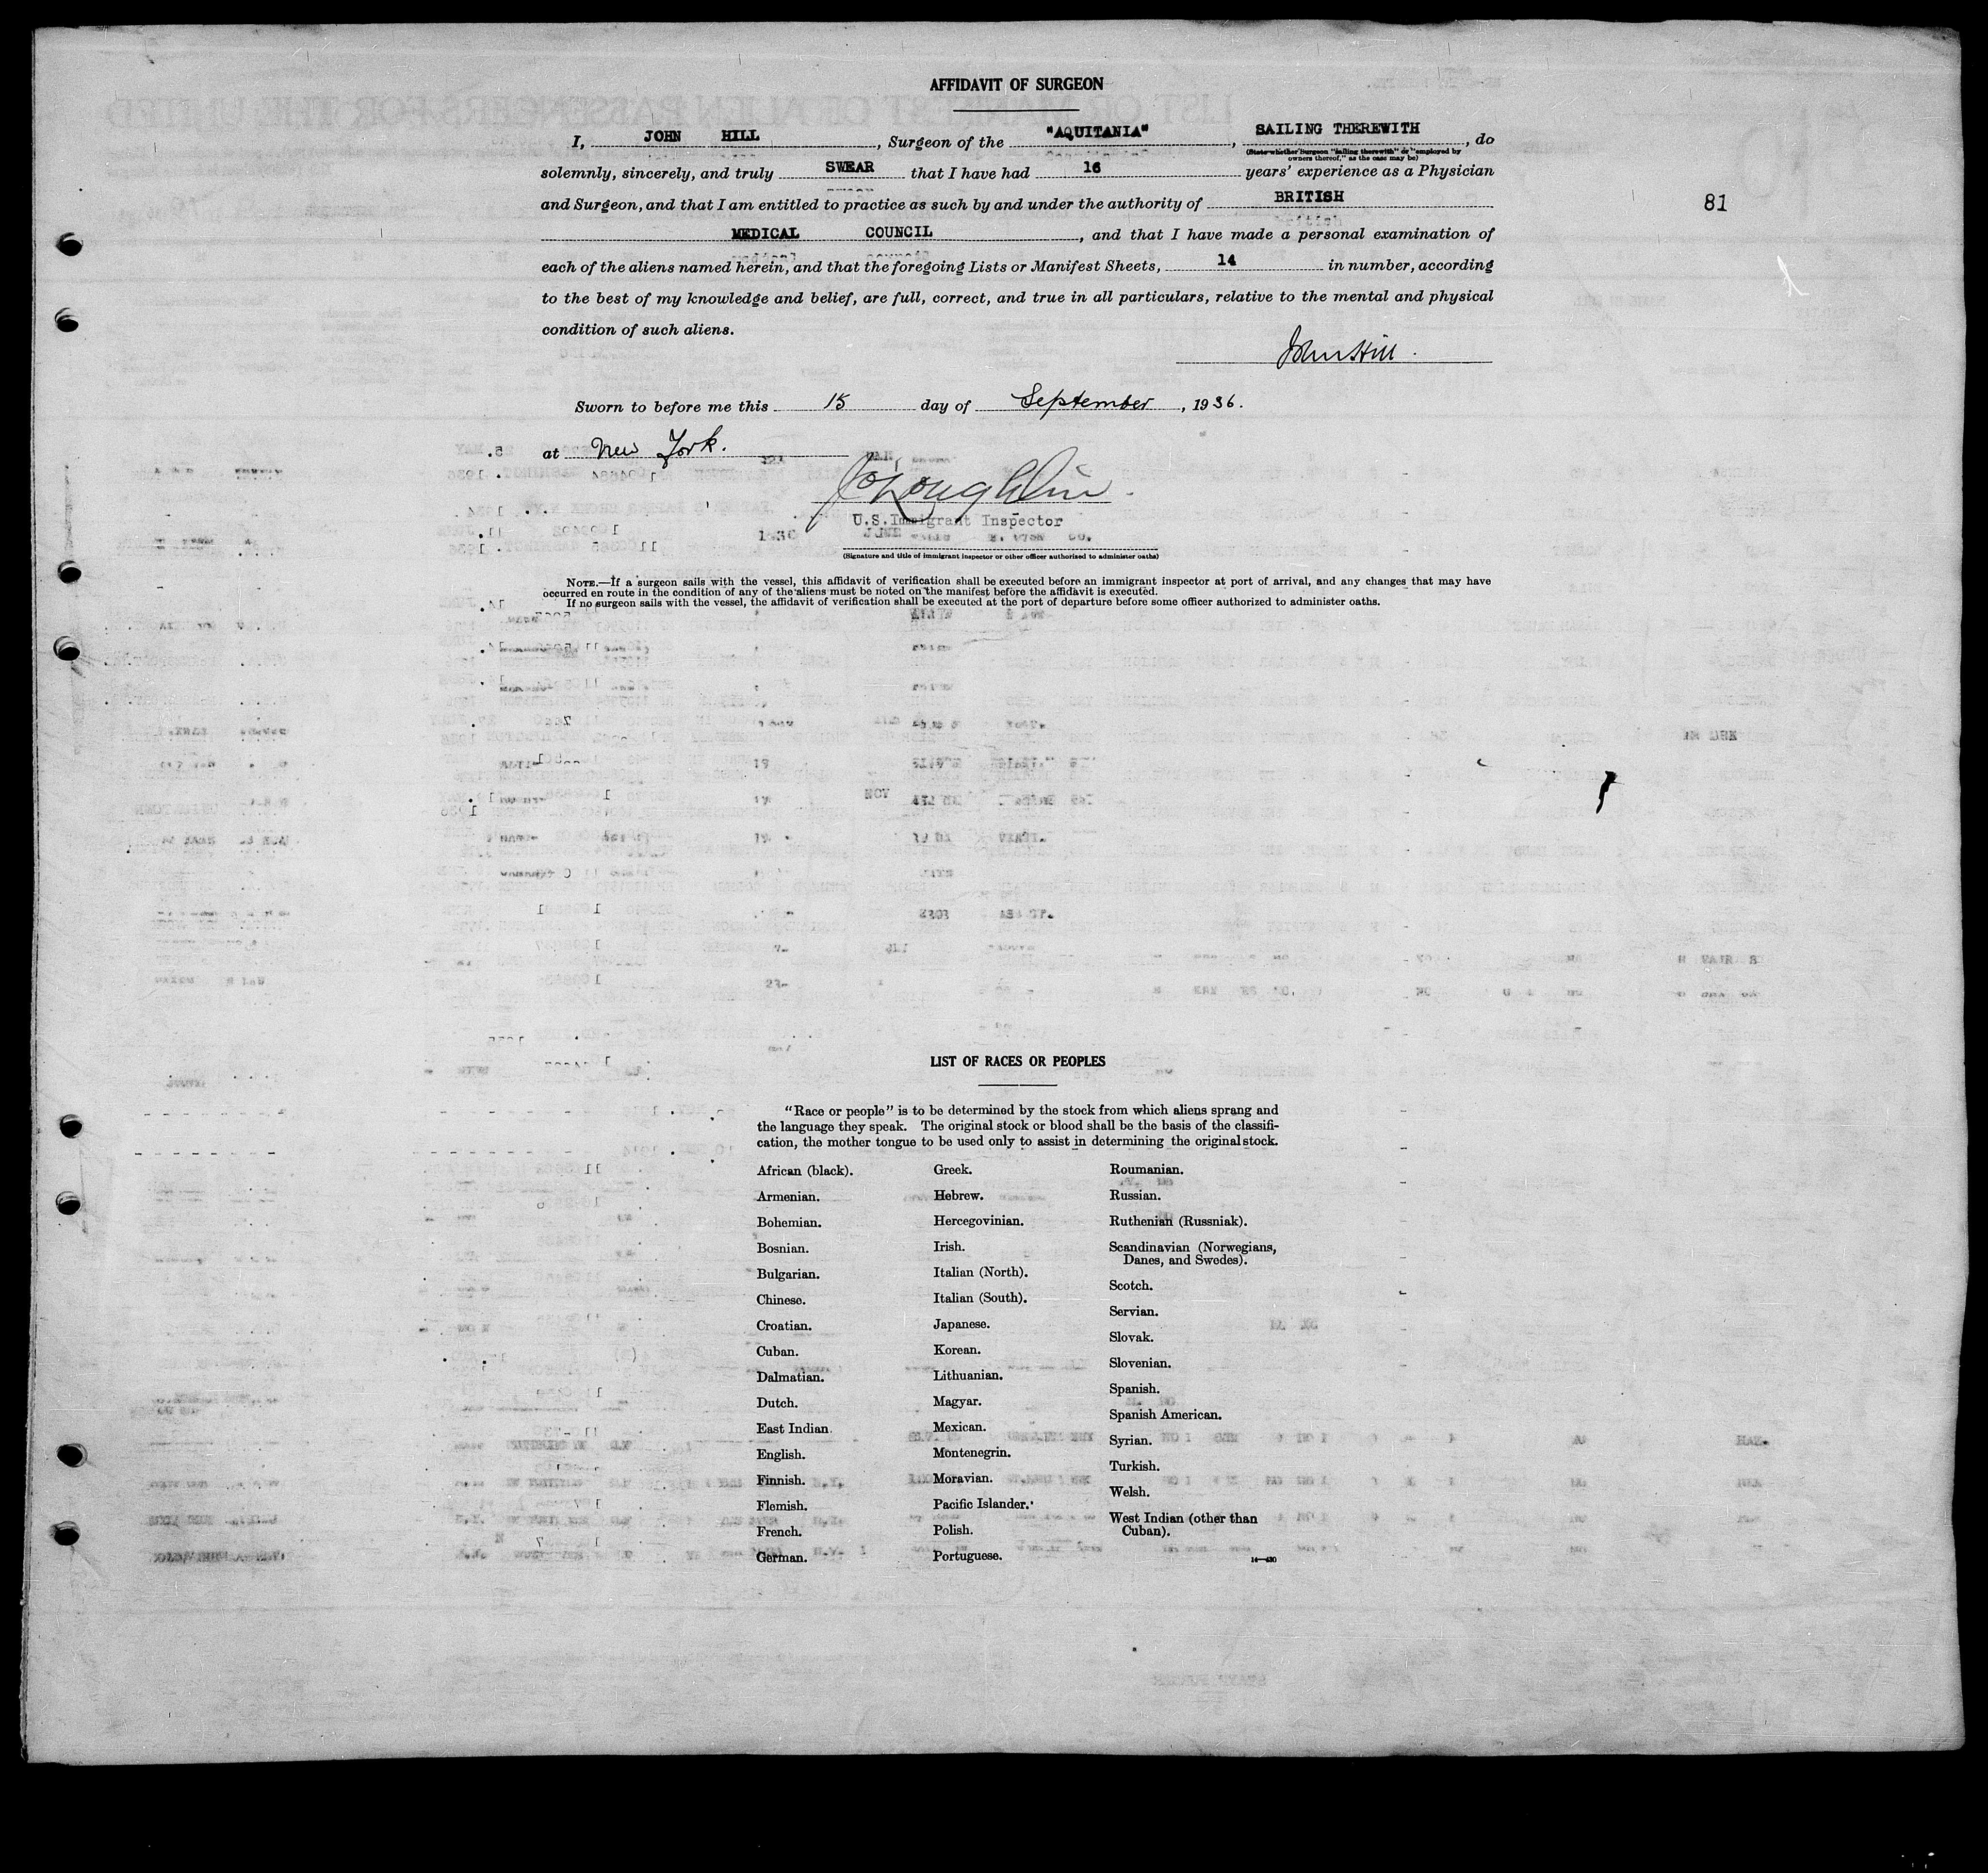 AFFIDAVIT OF SURGEON
I, JOHN HILL, Surgeon of the "AQUITANIA", SAILING THEREWITH, do
(State whether Surgeon "sailing therewith" or "employed by
owners thereof," as the case may be)
solemnly, sincerely, and truly SWEAR that I have had 16 years' experience as a Physician
and Surgeon, and that I am entitled to practice as such by and under the authority of BRITISH
81
MEDICAL COUNCIL, and that I have made a personal examination of
each of the aliens named herein, and that the foregoing Lists or Manifest Sheets, 14 in number, according
to the best of my knowledge and belief, are full, correct, and true in all particulars, relative to the mental and physical
condition of such aliens.
John Hill.
Sworn to before me this 15 day of September, 1936.
at New York.
U.S. Immigrant Inspector
(Signature and title of immigrant inspector or other officer authorized to administer oaths)
NOTE.—If a surgeon sails with the vessel, this affidavit of verification shall be executed before an immigrant inspector at port of arrival, and any changes that may have
occurred en route in the condition of any of the aliens must be noted on the manifest before the affidavit is executed.
If no surgeon sails with the vessel, the affidavit of verification shall be executed at the port of departure before some officer authorized to administer oaths.
LIST OF RACES OR PEOPLES
"Race or people" is to be determined by the stock from which aliens sprang and
the language they speak. The original stock or blood shall be the basis of the classifi-
cation, the mother tongue to be used only to assist in determining the original stock.
African (black).
Armenian.
Bohemian.
Bosnian.
Bulgarian.
Chinese.
Croatian.
Cuban.
Dalmatian.
Dutch.
East Indian.
English.
Finnish.
Flemish.
French.
German.
Greek.
Hebrew.
Hercegovinian.
Irish.
Italian (North).
Italian (South).
Japanese.
Korean.
Lithuanian.
Magyar.
Mexican.
Montenegrin.
Moravian.
Pacific Islander.
Polish.
Portuguese.
Roumanian.
Russian.
Ruthenian (Russniak).
Scandinavian (Norwegians,
Danes, and Swedes).
Scotch.
Servian.
Slovak.
Slovenian.
Spanish.
Spanish American.
Syrian.
Turkish.
Welsh.
West Indian (other than
Cuban).